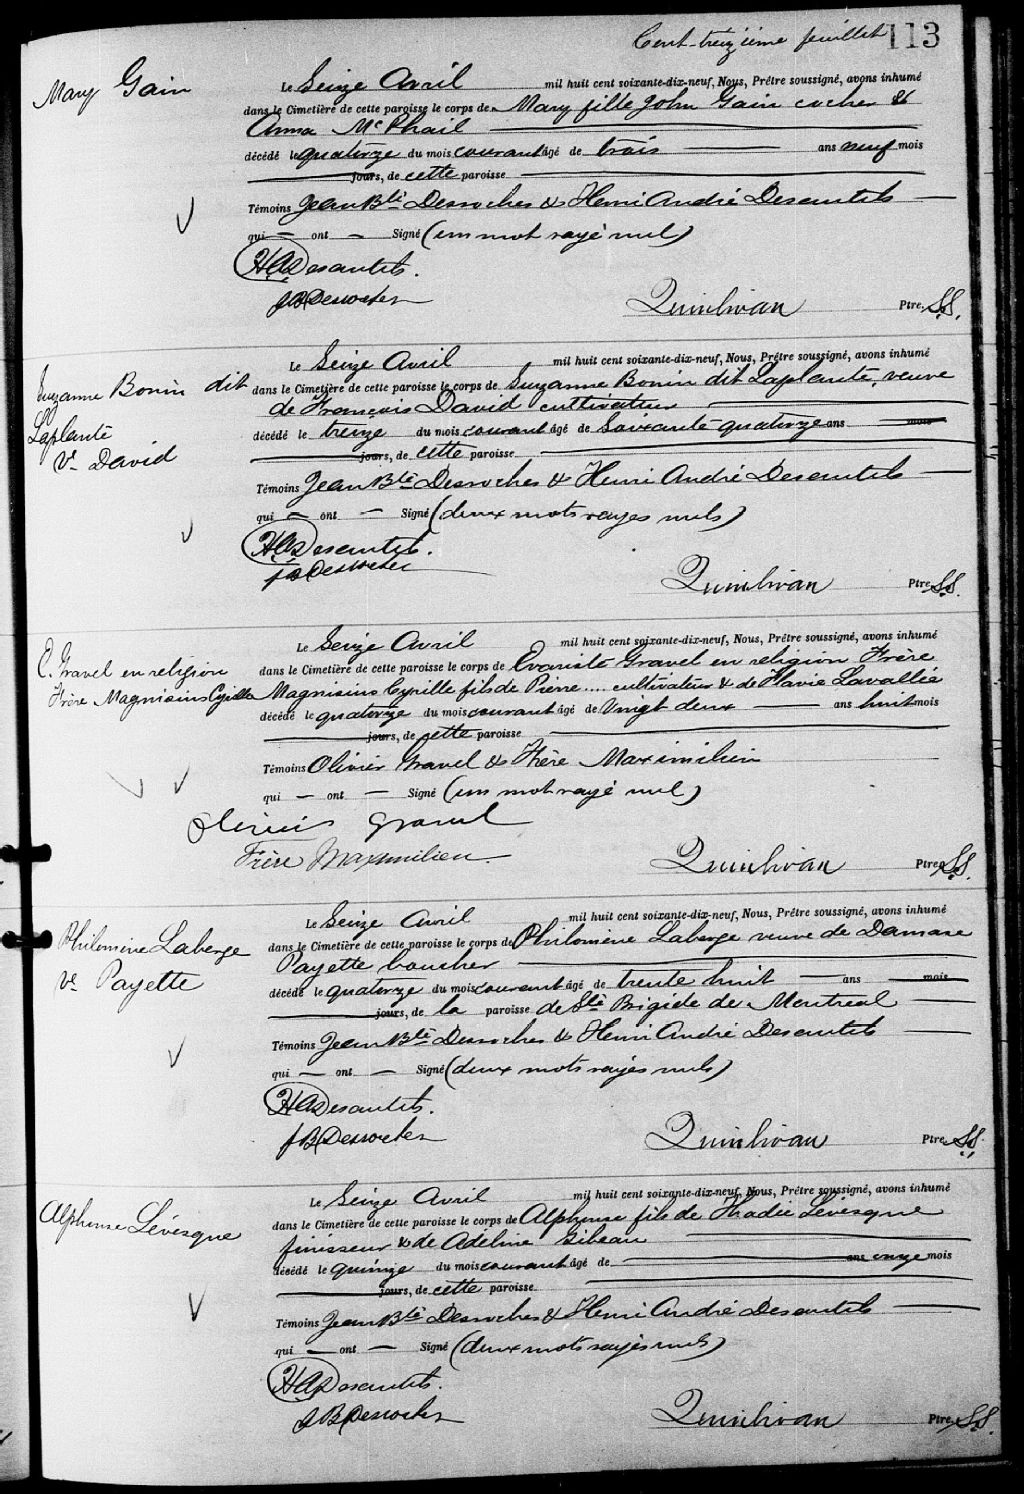 Cent-treizième feuillet 113
Mary Gain
Le Seize Avril mil huit cent soixante-dix-neuf, Nous, Prêtre soussigné, avons inhumé
dans le Cimetière de cette paroisse le corps de Mary fille John Gain cocher &
Anna McPhail
décédé le quatorze du mois courant âgé de trois ans neuf mois
jours, de cette paroisse
Témoins Jean Bte Desroches & Henri André Desautels
qui ont Signé (un mot rayé nul)
HADesautels.
JBDesroches
Quinlivan Ptre, S.S.
Suzanne Bonin dit
Laplante
Ve David
Le Seize Avril mil huit cent soixante-dix-neuf, Nous, Prêtre soussigné, avons inhumé
dans le Cimetière de cette paroisse le corps de Suzanne Bonin dit Laplante, veuve
de François David cultivateur
décédé le treize du mois courant âgé de Soixante quatorze ans mois
jours, de cette paroisse
Témoins Jean Bte Desroches & Henri André Desautels
qui ont Signé (deux mots rayés nuls)
HADesautels.
JBDesroches
Quinlivan Ptre S.S.
E. Gravel en religion
Frère Magnisius Cyrille
Le Seize Avril mil huit cent soixante-dix-neuf, Nous, Prêtre soussigné, avons inhumé
dans le Cimetière de cette paroisse le corps de Evariste Gravel en religion Frère
Magnisius Cyrille fils de Pierre .... cultivateur & de Flavie Lavallée
décédé le quatorze du mois courant âgé de Vingt deux ans huit mois
jours, de cette paroisse
Témoins Olivier Gravel & Frère Maximilien
qui ont Signé (un mot rayé nul)
Gravel
Frère Maximilien
Quinlivan Ptre S.S.
Philomène Laberge
Ve Payette
Le Seize Avril mil huit cent soixante-dix-neuf, Nous, Prêtre soussigné, avons inhumé
dans le Cimetière de cette paroisse le corps de Philomène Laberge veuve de Damase
Payette boucher
décédé le quatorze du mois courant âgé de trente huit ans mois
jours, de la paroisse de Ste Brigide de Montreal
Témoins Jean Bte Desroches & Henri André Desautels
qui ont Signé (deux mots rayés nuls)
HADesautels.
JBDesroches
Quinlivan Ptre S.S.
Alphonse Lévesque
Le Seize Avril mil huit cent soixante-dix-neuf, Nous, Prêtre soussigné, avons inhumé
dans le Cimetière de cette paroisse le corps de Alphonse fils de Thadée Lévesque
finisseur & de Adeline Gibeau
décédé le quinze du mois courant âgé de ans onze mois
jours, de cette paroisse
Témoins Jean Bte Desroches & Henri André Desautels
qui ont Signé (deux mots rayés nuls)
HADesautels.
JBDesroches
Quinlivan Ptre, S.S.